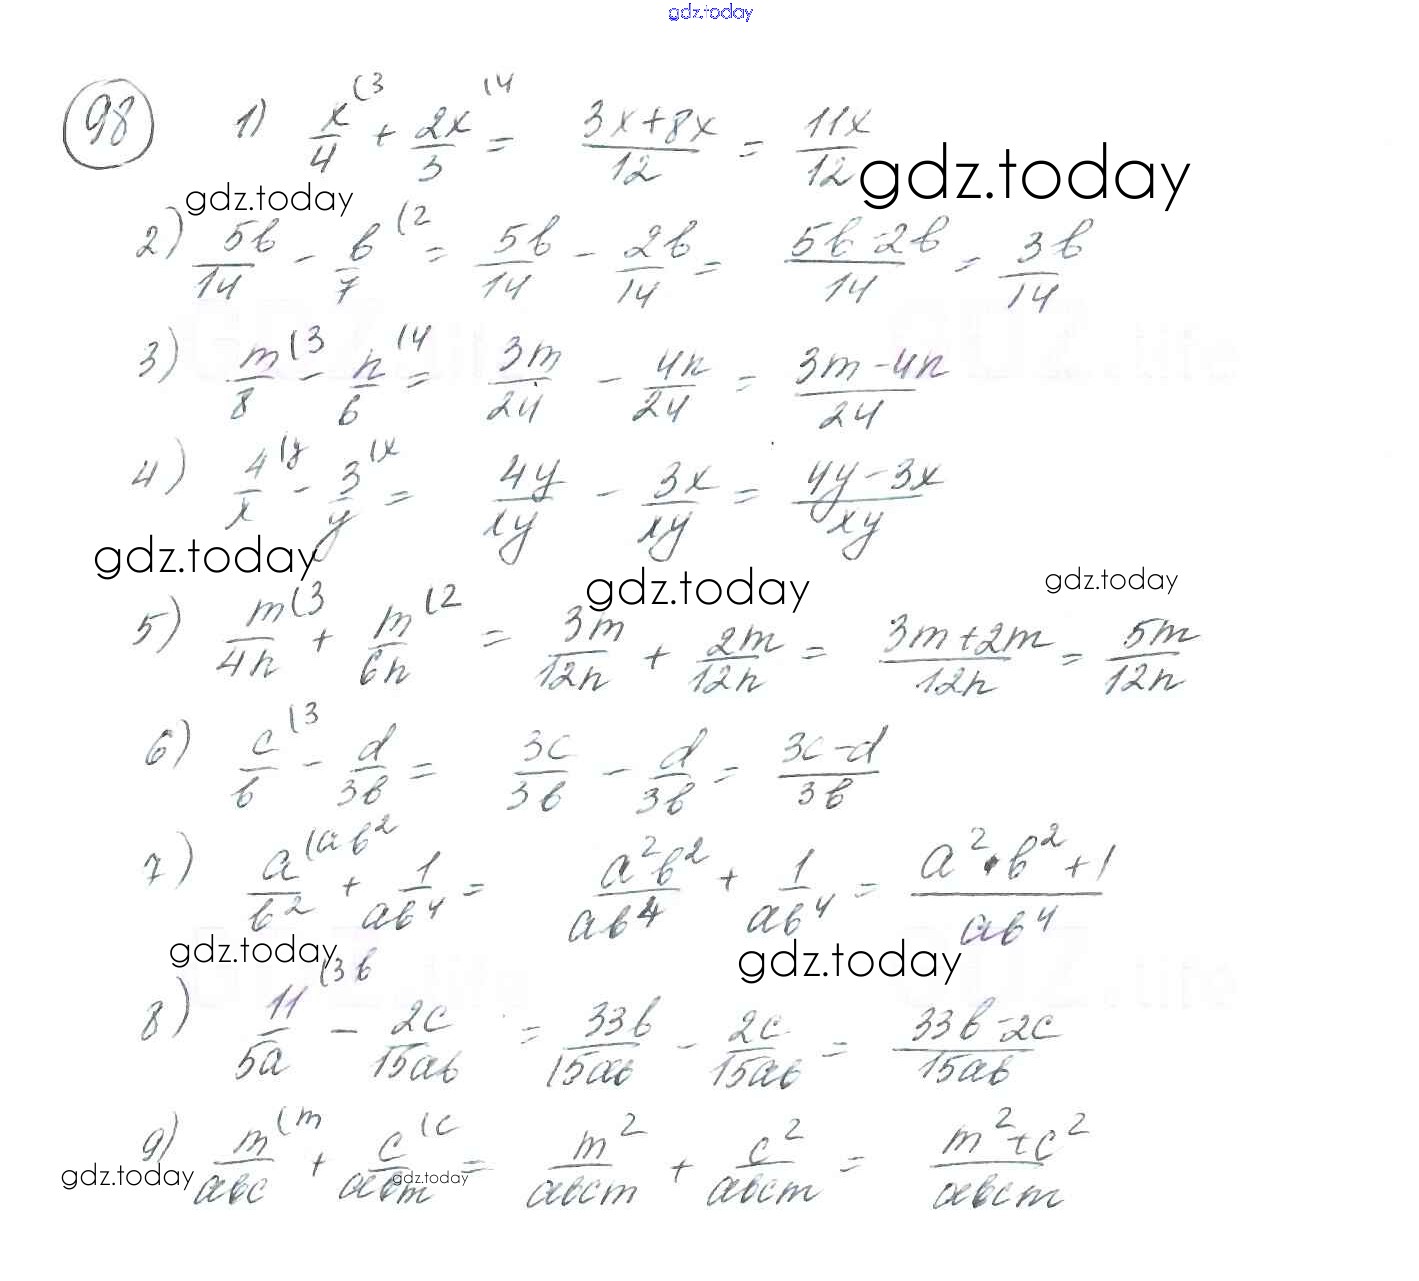 gdz.today
98 1) x/4 (3 + 2x/3 (4 = 3x+8x/12 = 11x/12 gdz.today
gdz.today
2) 5b/14 - b/7 (2 = 5b/14 - 2b/14 = 5b-2b/14 = 3b/14
3) m/8 (3 - n/6 (4 = 3m/24 - 4n/24 = 3m-4n/24
4) 4/x (y - 3/y (x = 4y/xy - 3x/xy = 4y-3x/xy
gdz.today gdz.today gdz.today
5) m/4n (3 + m/6n (2 = 3m/12n + 2m/12n = 3m+2m/12n = 5m/12n
6) c/b (3 - d/3b = 3c/3b - d/3b = 3c-d/3b
7) a/b² (ab² + 1/ab⁴ = a²b²/ab⁴ + 1/ab⁴ = a²·b²+1/ab⁴
gdz.today gdz.today
8) 11/5a (3b - 2c/15ab = 33b/15ab - 2c/15ab = 33b-2c/15ab
9) m/abc (m + c/abm (c = m²/abcm + c²/abcm = m²+c²/abcm
gdz.today gdz.today